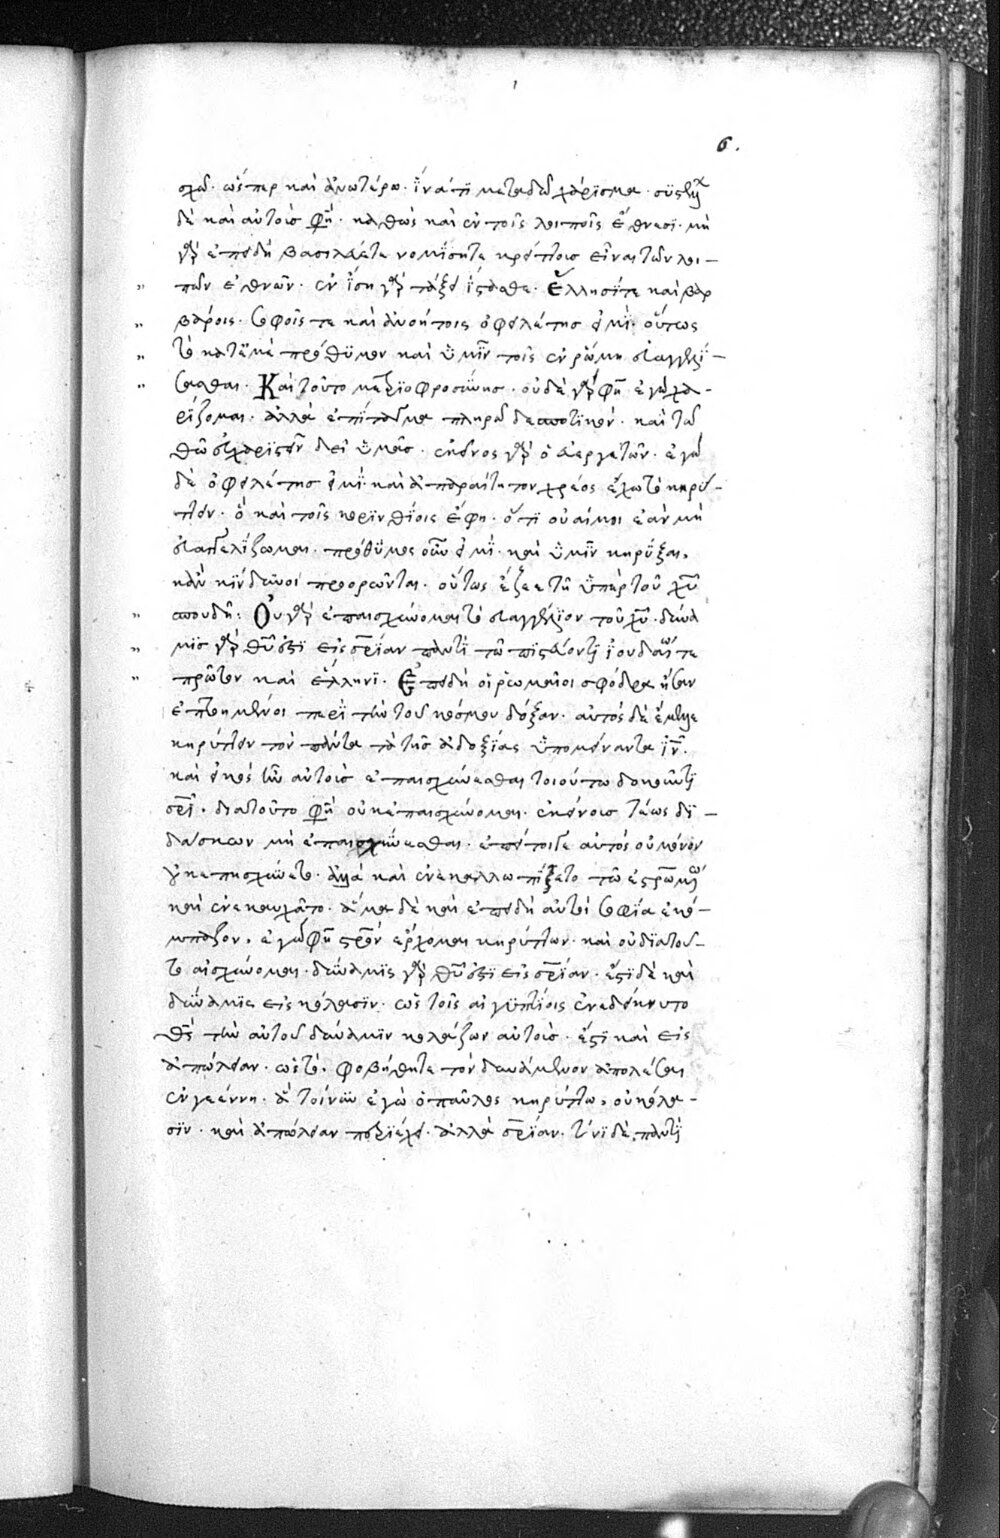 6.
σχῶ· ὥσπερ καὶ ἀνωτέρω· ἵνα τι μεταδῶ χάρισμα·
δὲ καὶ αὐτοὺς φη· καθὼς καὶ ἐν τοῖς λοιποῖς ἔθνεσι· μὴ
γὰρ ἐπειδὴ βασιλεύετε νομίσητε κρείττους εἶναι τῶν λοι-
πῶν ἐθνῶν· ἐν ἴση γὰρ τάξει ἵστασθε· Ἕλλησί τε καὶ βαρ
βάροις· σοφοῖς τε καὶ ἀνοήτοις ὀφειλέτης εἰμί· οὕτως
τὸ κατ' ἐμὲ πρόθυμον καὶ ὑμῖν τοῖς ἐν ῥώμη εὐαγγελί-
σασθαι. Καὶ τοῦτο μετριοφροσύνης· οὐδὲ γὰρ φη ἐγὼ χα-
ρίζομαι· ἀλλὰ ἐπίταγμα πληρῶ δεσποτικόν· καὶ τῶ
θῶ εὐχαριστεῖν δεῖ ὑμᾶς· ἐκεῖνος γὰρ ὁ εὐεργετῶν· ἐγὼ
δὲ ὀφειλέτης εἰμί· καὶ ἀπαραίτητον χρέος ἔχω τὸ κηρύτ-
τειν· ὃ καὶ τοῖς κορινθίοις ἔφη· ὅτι οὐαί μοι ἐὰν μὴ
εὐαγγελίζωμαι· πρόθυμος οὖν εἰμί· καὶ ὑμῖν κηρύξαι,
κἂν κίνδυνοι προορῶνται· οὕτως ἔζεε τῆ ὑπὲρ τοῦ χυ
σπουδῆ: Οὐ γὰρ ἐπαισχύνομαι τὸ εὐαγγέλιον τοῦ χυ· δύνα
μις γὰρ θυ ἐστὶ εἰς σριαν παντὶ τῶ πιστεύοντι ἰουδαίω τε
πρῶτον καὶ ἕλληνι· Ἐπειδὴ οἱ ῥωμαῖοι σφόδρα ἦσαν
ἐπτοημένοι περὶ τὴν τοῦ κόσμου δόξαν· αὐτὸς δὲ ἔμελλε
κηρύττειν τὸν πάντα τὰ τῆς ἀδοξίας ὑπομείναντα ιν·
καὶ εἰκὸς ἦν αὐτοὺς ἐπαισχύνεσθαι τοιούτω δοκοῦντι
σρι· διὰ τοῦτο φη οὐκ ἐπαισχύνομαι· ἐκείνους τέως δι-
δάσκων μὴ ἐπαισχύνεσθαι· ἐπεί τοιγε αὐτὸς οὐ μόνον
οὐκ ἐπησχύνετο· ἀλλὰ καὶ ἐνεκαλλωπίζετο τῶ ἐσταυρωμένω
καὶ ἐνεκαυχᾶτο· ἅμα δὲ καὶ ἐπειδὴ αὐτοὶ σοφία ἐκό-
μπαζον, ἐγὼ φη στρον ἔρχομαι κηρύττων· καὶ οὐ διὰ τοῦ-
το αἰσχύνομαι· δύναμις γὰρ θυ ἐστὶ εἰς σριαν· ἔστι δὲ καὶ
δύναμις εἰς κόλασιν· ὡς τοῖς αἰγυπτίοις ἐνεδείκνυτο
θς τὴν αὐτοῦ δύναμιν κολάζων αὐτούς· ἔστι καὶ εἰς
ἀπώλειαν· ὡς τὸ· φοβήθητε τὸν δυνάμενον ἀπολέσαι
ἐν γεέννη· ἃ τοίνυν ἐγὼ ὁ παῦλος κηρύττω, οὐ κόλα-
σιν· καὶ ἀπώλειαν περιέχει· ἀλλὰ σριαν· τίνι δὲ, παντὶ